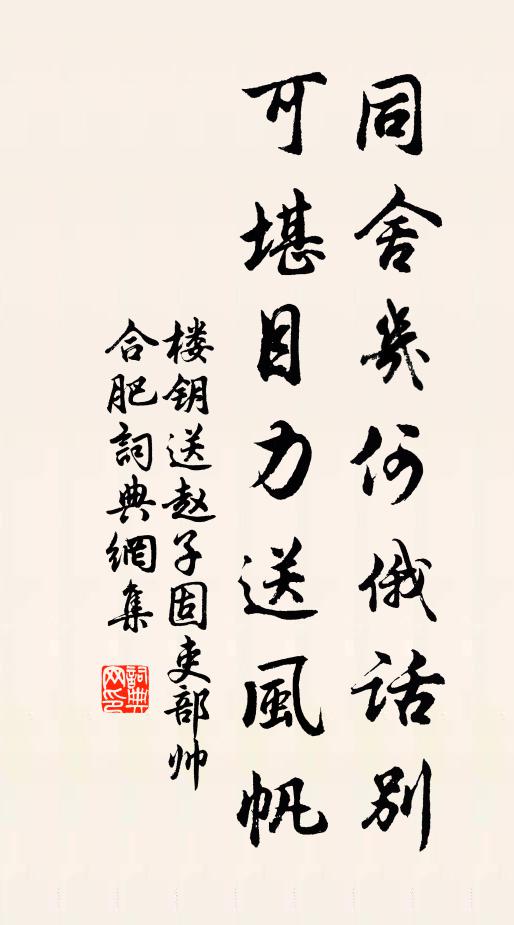 同舍幾何俄話別
可堪目力送風帆
楼钥送赵子固吏部帅
合肥詞典網集
詞典
网印